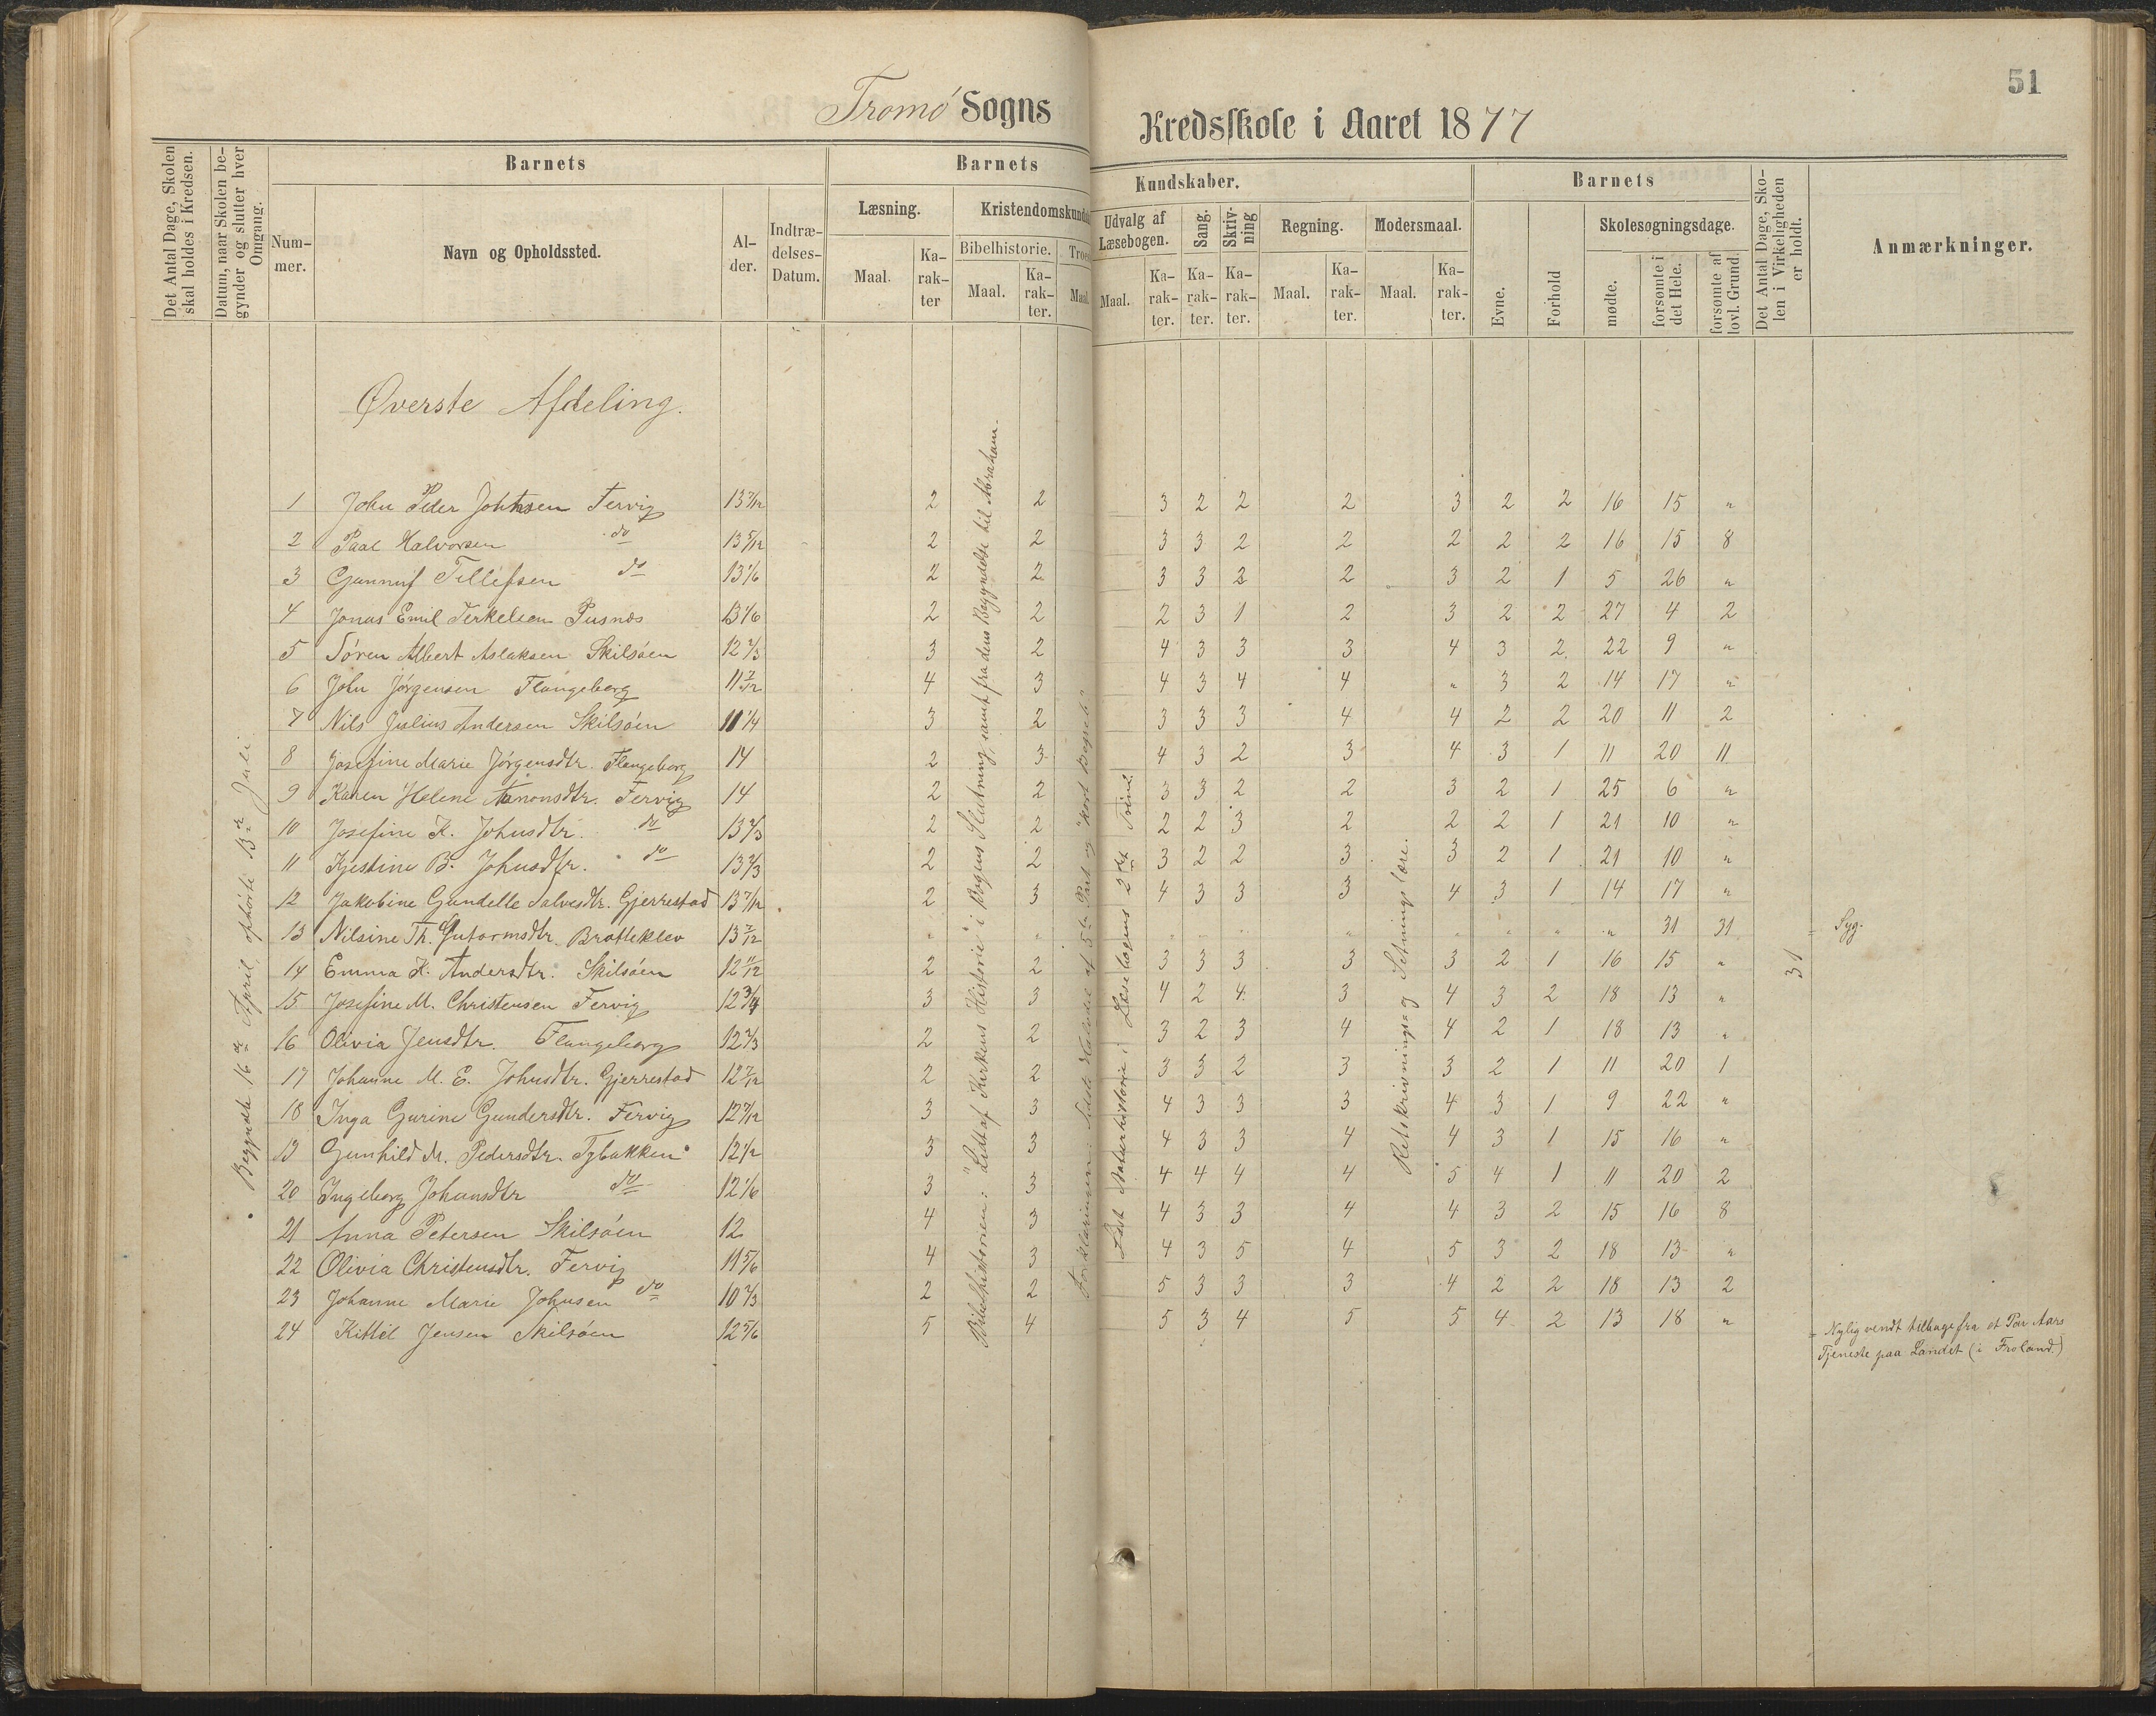 51
Tromö Sogns Kredsskole i Aaret 1877
Det Antal Dage, Skolen skal holdes i Kredsen.
Datum, naar Skolen begynder og slutter hver Omgang.
Barnets
Nummer.
Navn og Opholdssted.
Alder.
Indtrædelses-Datum.
Barnets Kundskaber.
Læsning.
Maal.
Karakter
Kristendomskundsk
Bibelhistorie.
Maal.
Karakter.
Troes
Maal.
Udvalg af Læsebogen.
Maal.
Karakter.
Sang.
Karakter.
Skrivning
Karakter.
Regning.
Maal.
Karakter.
Modersmaal.
Maal.
Karakter.
Barnets
Evne.
Forhold
Skolesøgningsdage.
mødte.
forsømte i det Hele.
forsømte af lovl. Grund.
Det Antal Dage, Skolen i Virkeligheden er holdt.
Anmærkninger.
Øverste Afdeling.
Begyndte 16de April, ophörte 13de Juli
Bibelhistorien: "Lidt af Kirkens Historie" i Bogens Slutning, samt fra dens Begyndelse til Abraham.
Forklaringen: Sidste Halvdel af 5te Part og "kort Begreb"
Læst Naturhistorie i Læsebogens 2det Trin.
Retskrivnings= og Sætningslære.
31
1 John Peder Johnsen Fervig 13 7/12 2 2 3 2 2 2 3 2 2 16 15 "
2 Paal Halvorsen do 13 5/12 2 2 3 3 2 2 2 2 2 16 15 8
3 Gunnuf Tellefsen do 13 1/6 2 2 3 3 2 2 3 2 1 5 26 "
4 Jonas Emil Terkelsen Pusnæs 13 1/6 2 2 2 3 1 2 3 2 2 27 4 2
5 Sören Albert Aslaksen Skilsöen 12 2/3 3 2 4 3 3 3 4 3 2 22 9 "
6 John Jörgensen Flangeborg 11 7/12 4 3 4 3 4 4 " 3 2 14 17 "
7 Nils Julius Andersen Skilsöen 11 1/4 3 2 3 3 3 4 4 2 2 20 11 2
8 Josefine Marie Jörgensdtr. Flangeborg 14 2 3 4 3 2 3 4 3 1 11 20 11
9 Karen Helene Aanonsdtr. Fervig 14 2 2 3 3 2 2 3 2 1 25 6 "
10 Josefine K. Johnsdtr. do 13 2/3 2 2 2 2 3 2 2 2 1 21 10 "
11 Kjestine B. Johnsdtr. do 13 2/3 2 2 3 2 2 3 3 2 1 21 10 "
12 Jakobine Gundelle Salvesdtr. Gjerrestad 13 7/12 2 3 4 3 3 3 4 3 1 14 17 "
13 Nilsine Th. Gutormsdtr. Bratteklev 13 7/12 " " " " " " " " " " 31 31 = Syg.
14 Emma K. Andersdtr. Skilsöen 12 11/12 2 2 3 3 3 3 3 2 1 16 15 "
15 Josefine M. Christensen Fervig 12 3/4 3 3 4 2 4 3 4 3 2 18 13 "
16 Olivia Jensdtr. Flangeborg 12 2/3 2 2 3 2 3 4 4 2 1 18 13 "
17 Johanne M. E. Johnsdtr. Gjerrestad 12 7/12 2 2 3 3 2 3 3 2 1 11 20 1
18 Inga Gurine Gundersdtr. Fervig 12 7/12 3 3 4 3 3 3 4 3 1 9 22 "
19 Gunhild M. Pedersdtr. Tybakken 12 1/2 3 3 4 3 3 4 4 3 1 15 16 "
20 Ingeborg Johansdtr do 12 1/6 3 3 4 4 4 4 5 4 1 11 20 2
21 Anna Petersen Skilsöen 12 4 3 4 3 3 4 4 3 2 15 16 8
22 Olivia Christensdtr. Fervig 11 5/6 4 3 4 3 5 4 5 3 2 18 13 "
23 Johanne Marie Johnsen do 10 2/3 2 2 5 3 3 3 4 2 2 18 13 2
24 Kittil Jensen Skilsöen 12 5/6 5 4 5 3 4 5 5 4 2 13 18 "
= Nylig vendt tilbage fra et Par Aars
Tjeneste paa Landet (i Froland.)